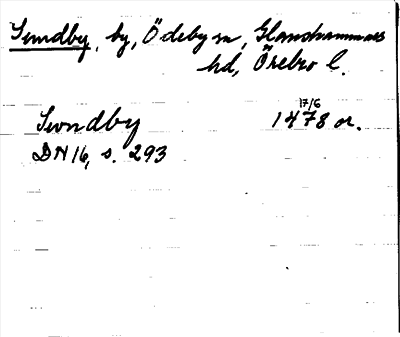 Sundby, by, Ödeby sn, Glanshammars
hd, Örebro l.
Swndby 17/6 1478 or.
DN 16, s. 293